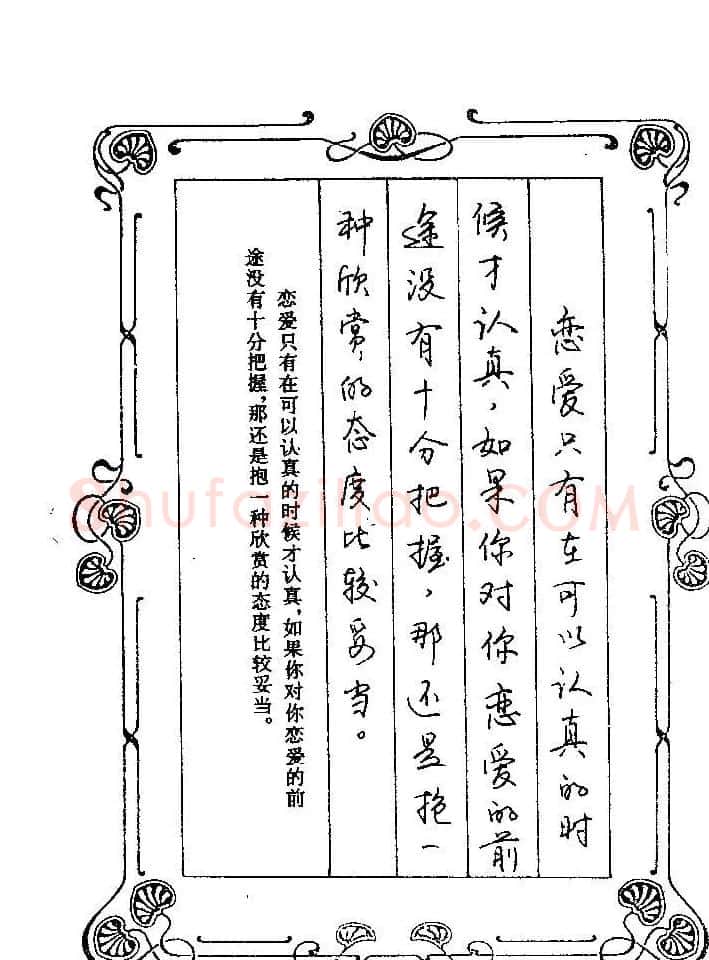 恋爱只有在可以认真的时
候才认真，如果你对你恋爱的前
途没有十分把握，那还是抱一
种欣赏的态度比较妥当。
恋爱只有在可以认真的时候才认真，如果你对你恋爱的前
途没有十分把握，那还是抱一种欣赏的态度比较妥当。
Shufaziliao.COM